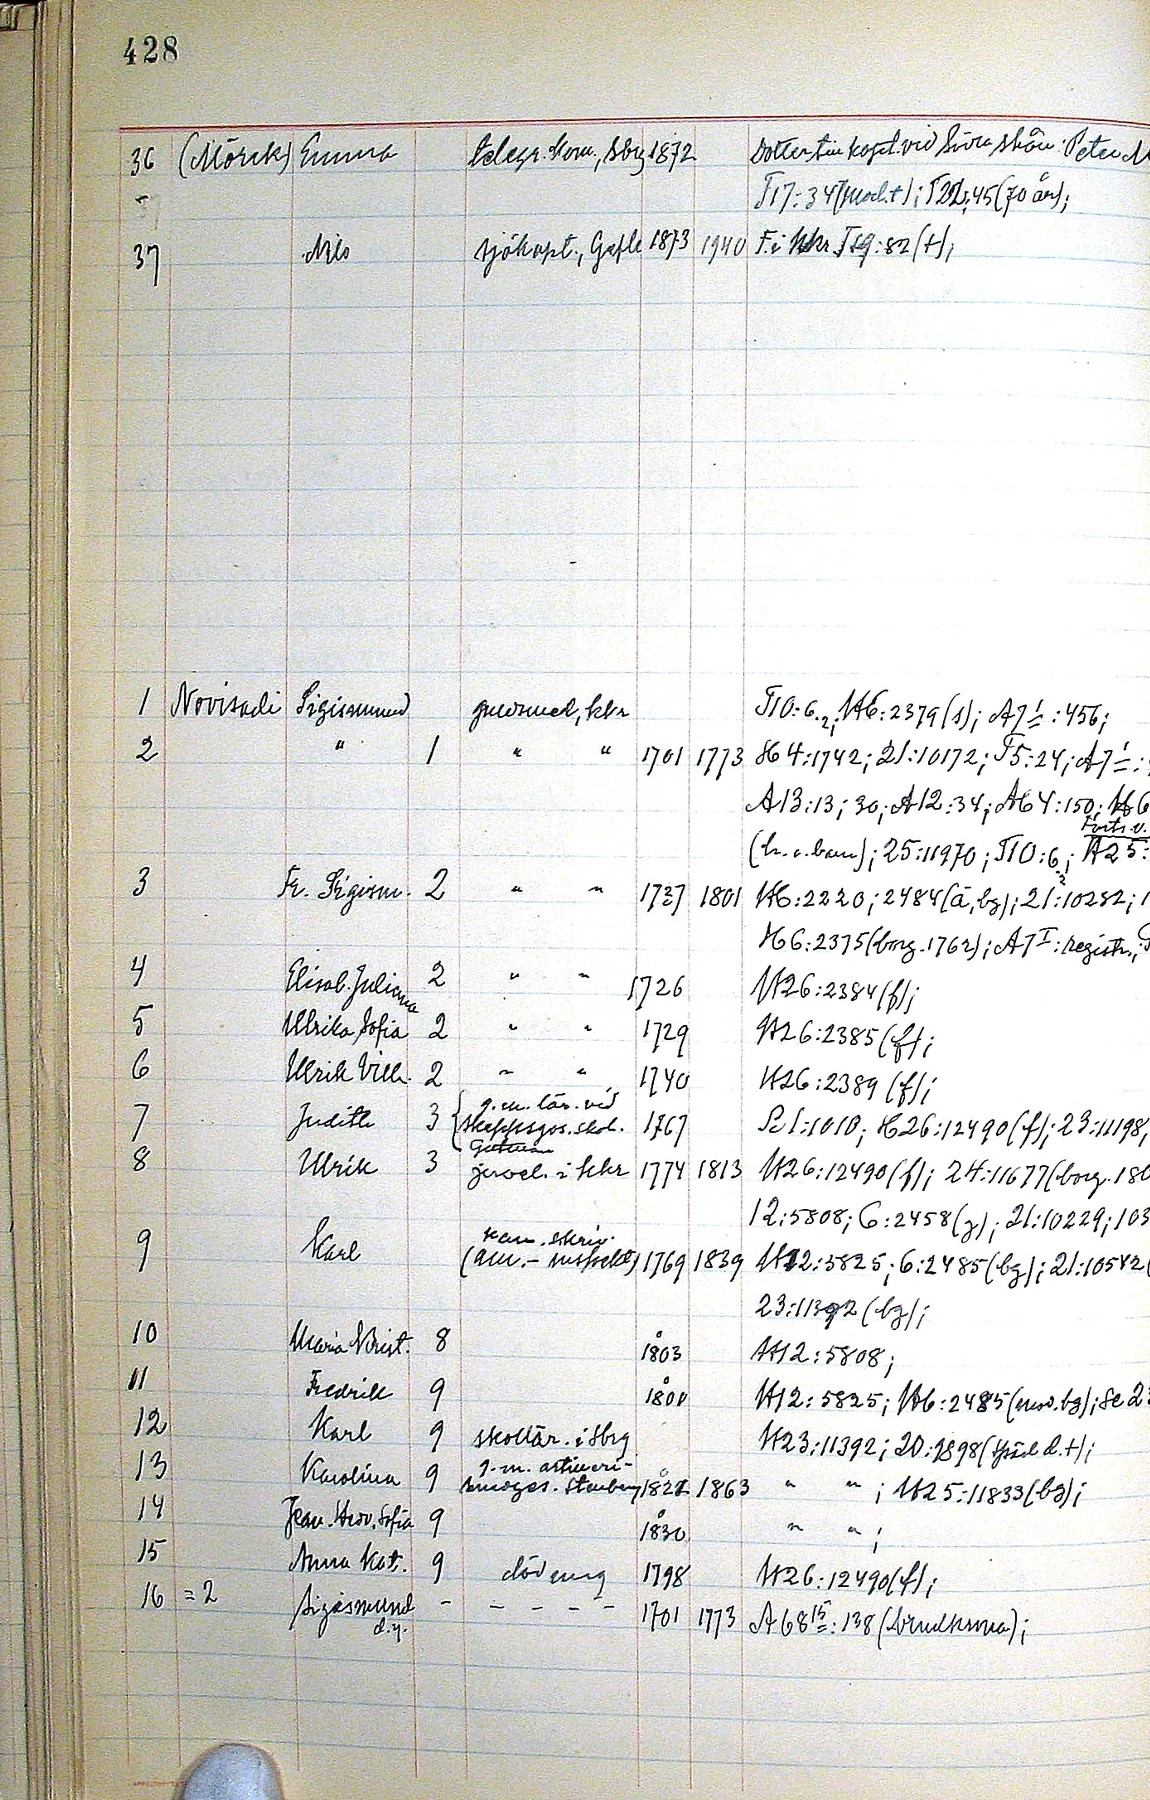 428
36 (Mörck) Emma telegr. kom., Sbg 1872 Dotter till kapt. vid Södra skån. Peter M
T17:34 (mod.t); T22:45 (70 år);
37 Nils sjökapt., Gefle 1873 1940 F. i kkr. T29:82 (t);
1 Novisadi Sigismund guldsmed, kkr T10:6.2; H6:2379 (s); A7 1:456;
2 " 1 " " 1701 1773 H4:1742; 21:10172; T5:24; A7 1:
A13:13; 30; A12:34; A64:150; H6
Forts. v.
(h. o. barn); 25:11970; T10:6.2; H25:
3 Fr. Sigism. 2 " " 1737 1801 H6:2220; 2484 (ä, bg); 21:10282;
H6:2375 (borg. 1762); A7 I: registr.,
4 Elisab. Juliana 2 " " 1726 H26:2384 (f);
5 Ulrika Sofia 2 " " 1729 H26:2385 (f);
6 Ulrik Vilh. 2 " " 1740 H26:2389 (f);
7 Judith 3 { g. m. lär. vid skeppsgos. skol. 1767 Se 1:1010; H26:12490 (f); 23:11198,
Gutman
8 Ulrik 3 juvel. i kkr 1774 1813 H26:12490 (f); 24:11677 (borg. 180
12:5808; 6:2458 (g); 21:10229; 103
kam. skriv.
9 Karl (am.-inspekt) 1769 1839 H12:5825; 6:2485 (bg); 21:10582 (
23:11392 (bg);
10 Maria Krist. 8 1803 H12:5808;
11 Fredrik 9 1800 H12:5825; H6:2485 (mod. bg); Se 23
12 Karl 9 skollär. i Sbg H23:11392; 20:9898 (späd d. t);
13 Karolina 9 g. m. artilleri- 1822 1863 " " ; H25:11833 (bg);
14 Jean. Hedv. Sofia 9 1830 " " ;
15 Anna Kat. 9 död ung 1798 H26:12490 (f);
16 = 2 Sigismund d.y. - - - - - 1701 1773 A68 15:138 (brudkrona);